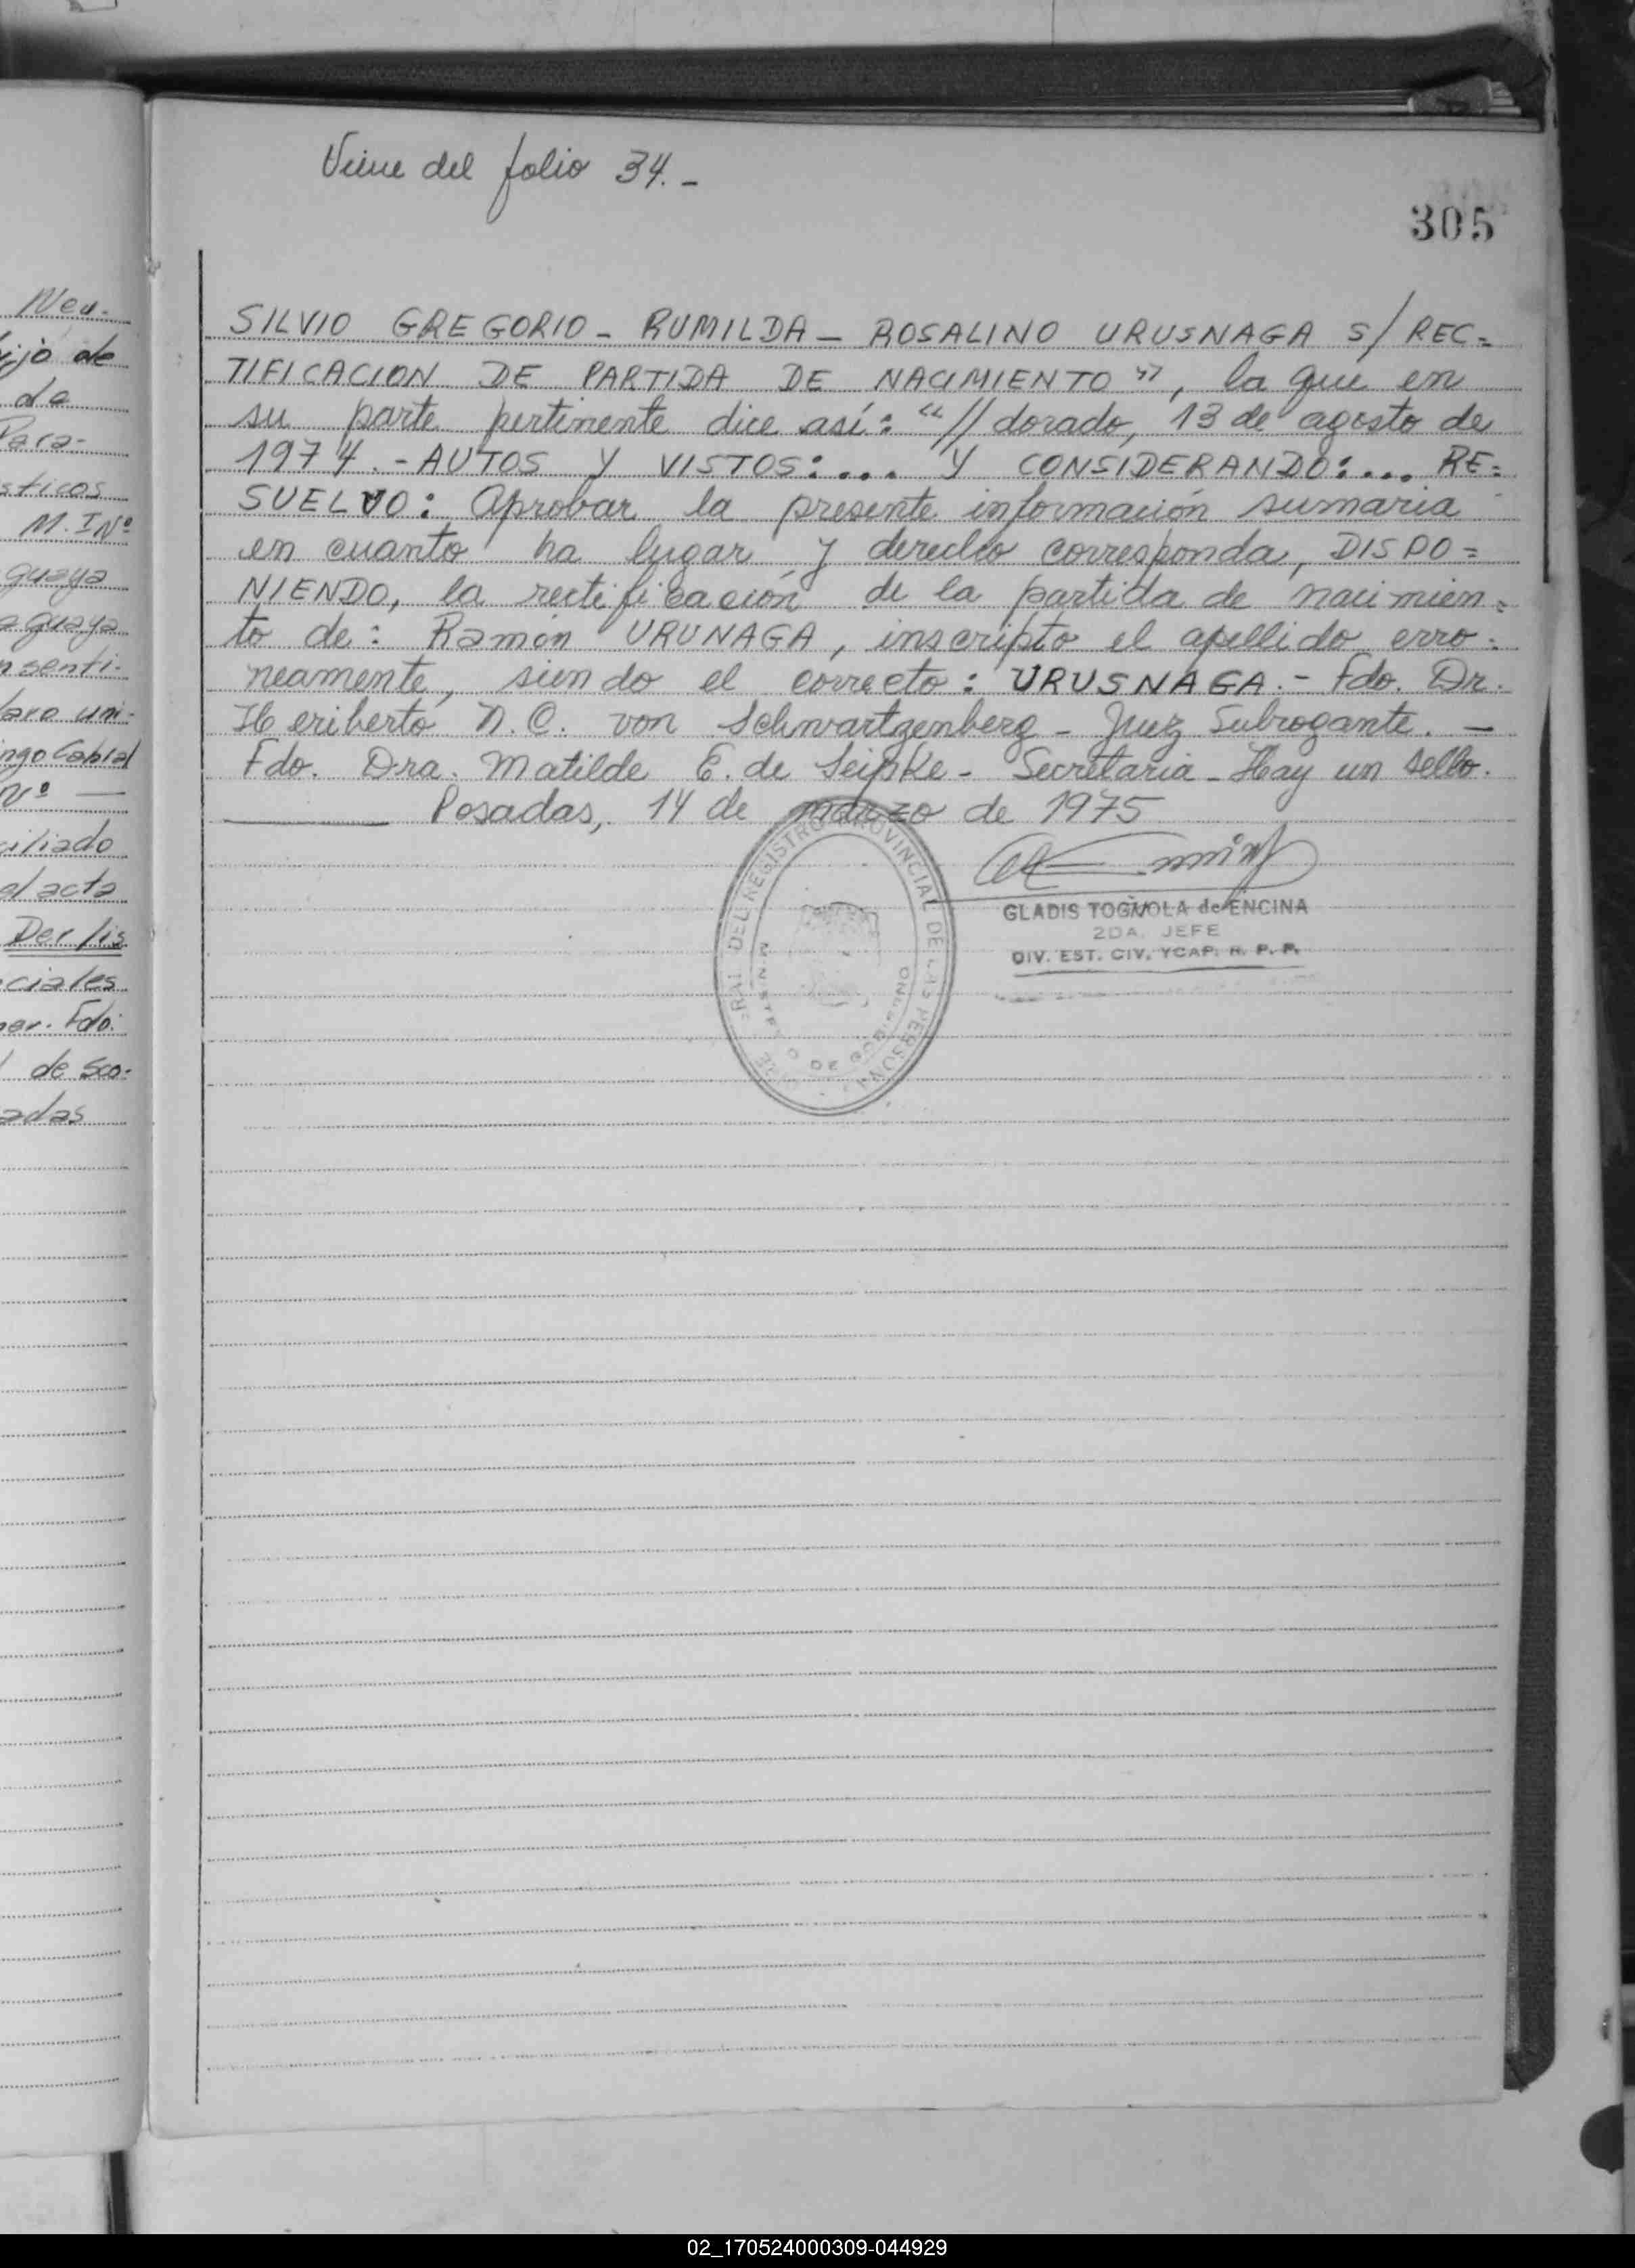 Viene del folio 34.-
305
SILVIO GREGORIO - RUMILDA - ROSALINO URUSNAGA S/ REC=
TIFICACION DE PARTIDA DE NACIMIENTO", la que en
su parte pertinente dice así: "// dorado, 13 de agosto de
1974.- AUTOS Y VISTOS:... Y CONSIDERANDO:... RE=
SUELVO: Aprobar la presente información sumaria
en cuanto ha lugar y derecho corresponda, DISPO=
NIENDO, la rectificación de la partida de nacimien=
to de: Ramón URUNAGA, inscripto el apellido erro=
neamente, siendo el correcto: URUSNAGA.- Fdo. Dr.
Heriberto N.C. von Schwartzenberg - Juez Subrogante. —
Fdo. Dra. Matilde E. de Seipke - Secretaria - Hay un sello.
Posadas, 14 de marzo de 1975
DEL REGISTRO PROVINCIAL DE LAS PERSONAS
GLADIS TOGNOLA de ENCINA
2DA. JEFE
DIV. EST. CIV. YCAP. R. P. P.
Neu-
ijo de
de
Para-
sticos
M. I Nº
guaya
aguaya
nsenti-
laro uni-
ingo Cabral
Nº —
iliado
el acta
Derlis
ciales
er. Fdo.
de Sco-
adas
02_170524000309-044929